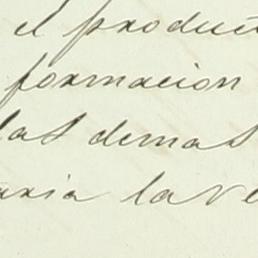 el produc
formacion
las demas
aria la ve